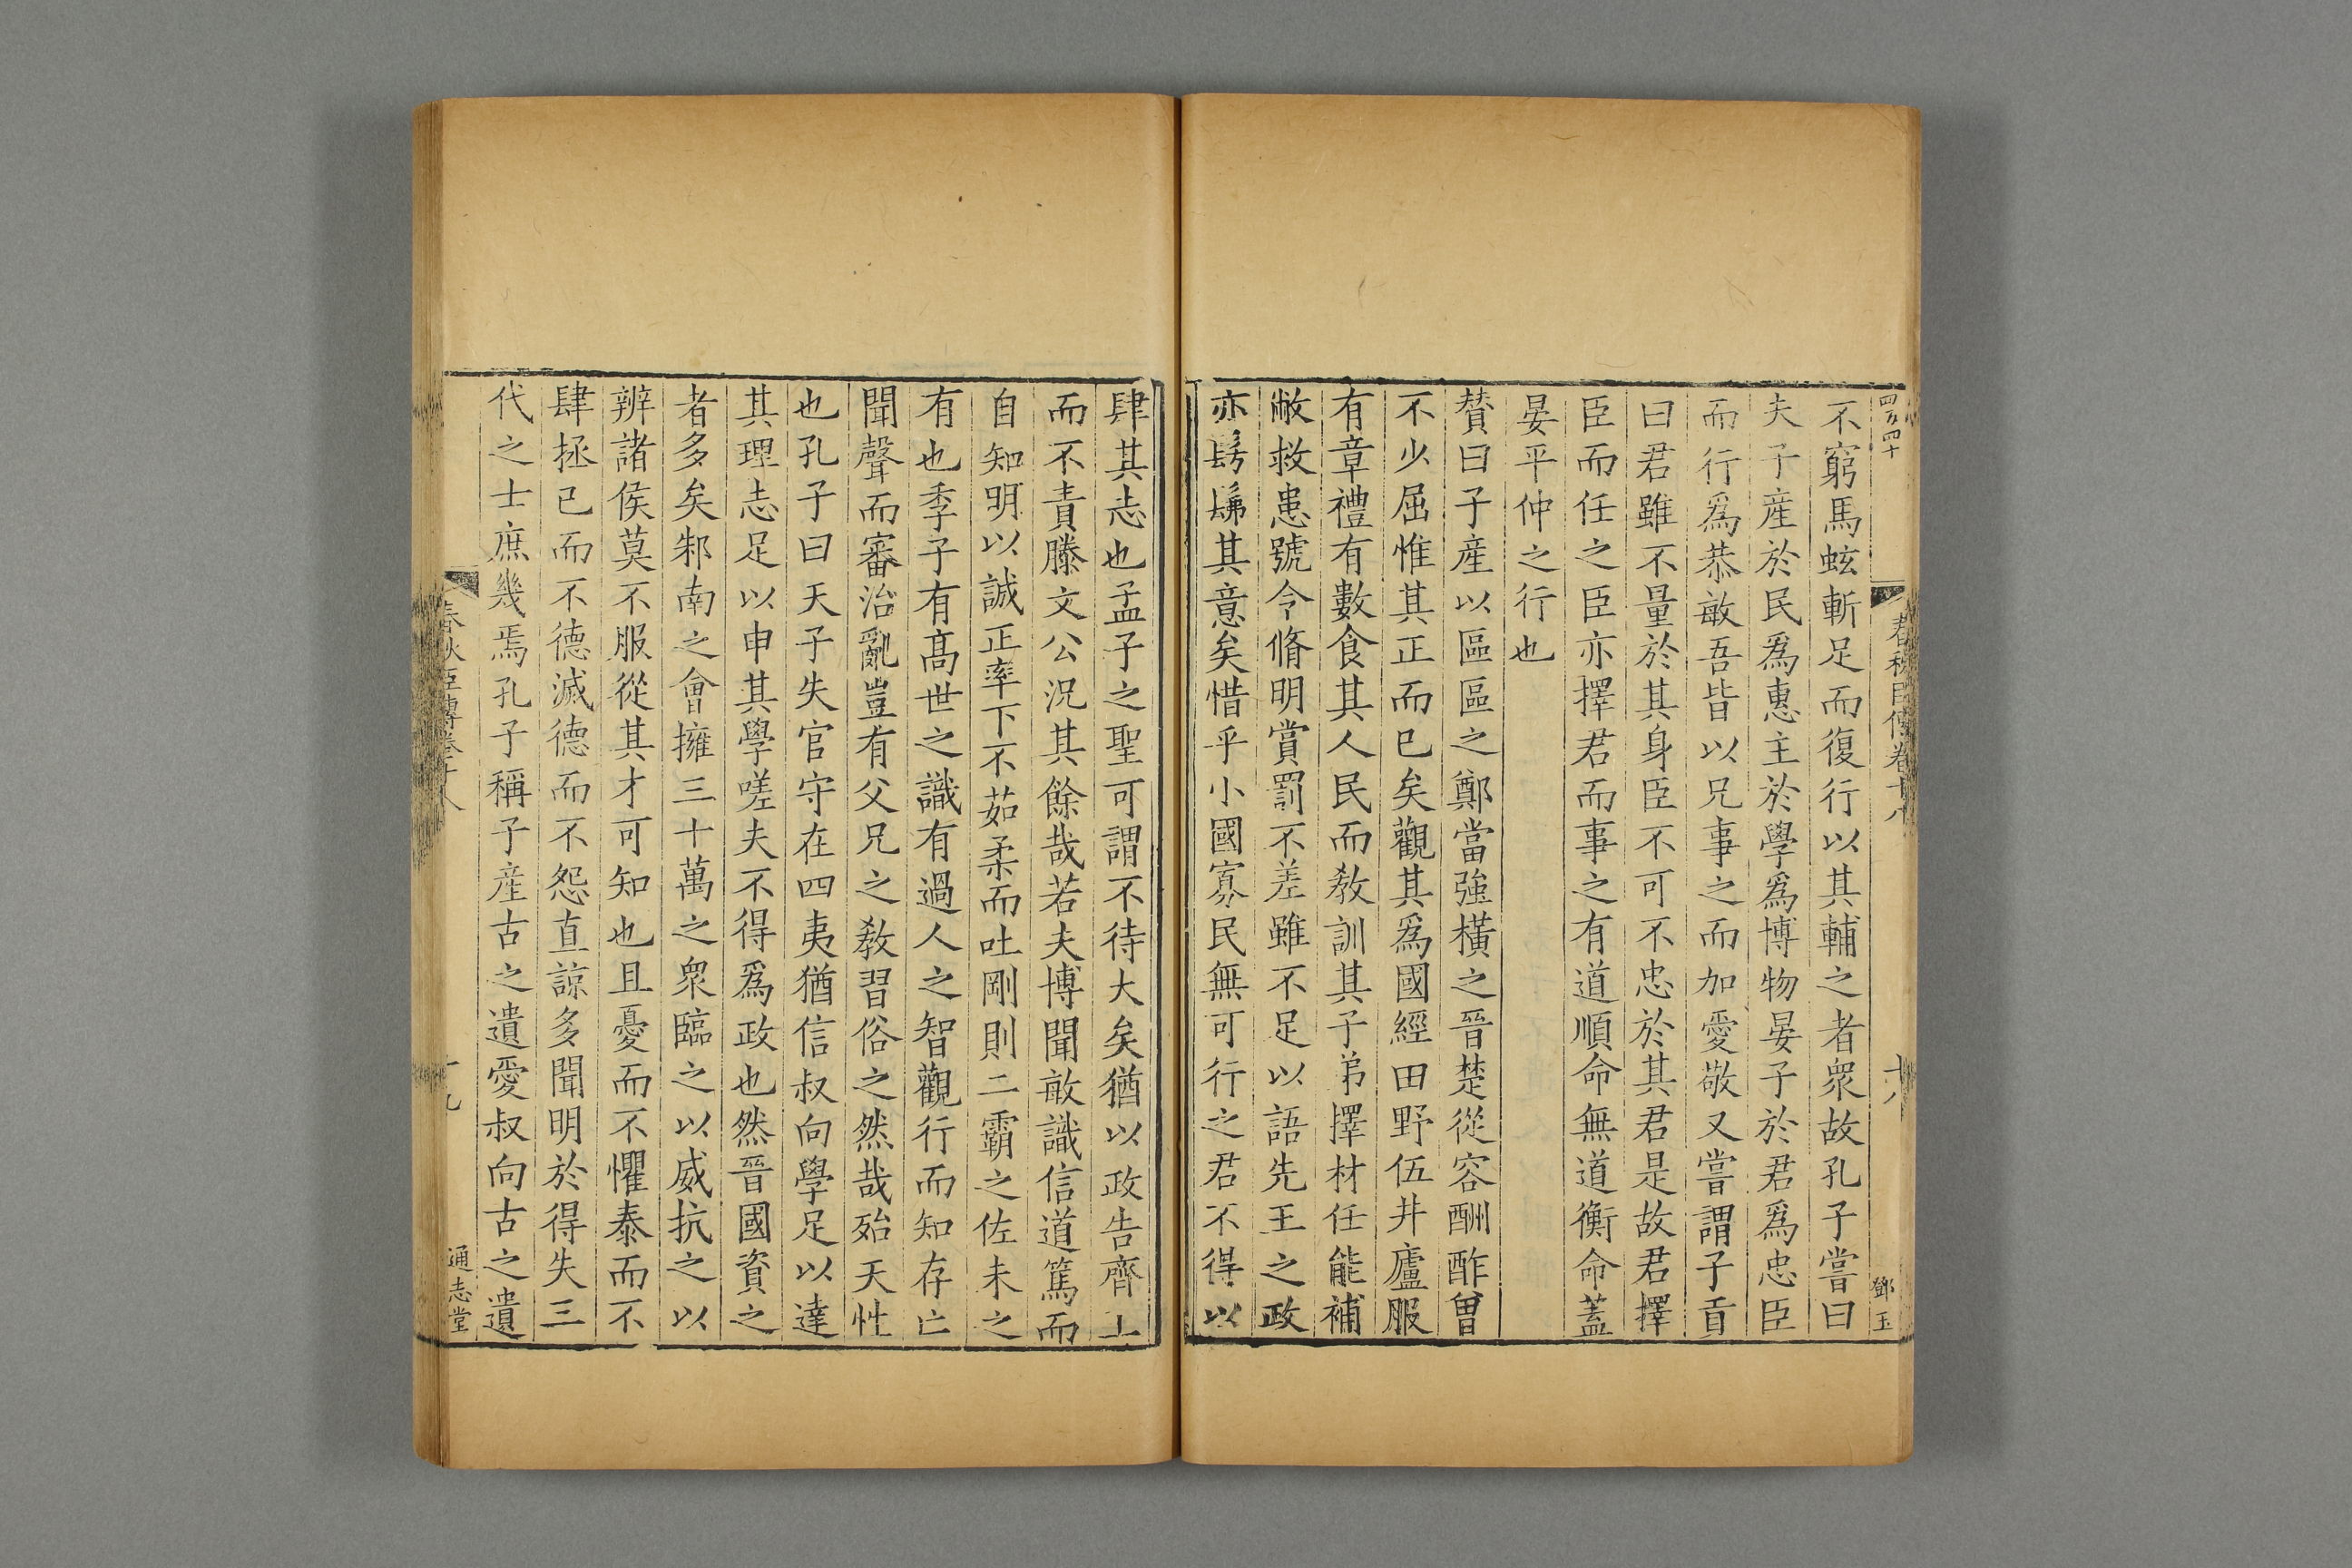 四百四十
春秋臣傳卷十八
十八
鄧玉
不窮馬蚿斬足而復行以其輔之者衆故孔子嘗曰
夫子産於民爲惠主於學爲博物晏子於君爲忠臣
而行爲恭敏吾皆以兄事之而加愛敬又嘗謂子貢
曰君雖不量於其身臣不可不忠於其君是故君擇
臣而任之臣亦擇君而事之有道順命無道衡命蓋
晏平仲之行也
賛曰子産以區區之鄭當強橫之晉楚從容酬酢曾
不少屈惟其正而已矣觀其爲國經田野伍井廬服
有章禮有數食其人民而敎訓其子弟擇材任能補
敝救患號令脩明賞罰不差雖不足以語先王之政
亦髣髴其意矣惜乎小國寡民無可行之君不得以
肆其志也孟子之聖可謂不待大矣猶以政告齊
而不責滕文公况其餘哉若夫博聞敏識信道篤而
自知明以誠正率下不茹柔而吐剛則二霸之佐未之
有也季子有髙世之識有過人之智觀行而知存亡
聞聲而審治亂豈有父兄之敎習俗之然哉殆天性
也孔子曰天子失官守在四夷猶信叔向學足以達
其理志足以申其學嗟夫不得爲政也然晉國資之
者多矣邾南之會擁三十萬之衆臨之以威抗之以
辨諸侯莫不服從其才可知也且憂而不懼泰而不
肆拯已而不德滅德而不怨直諒多聞明於得失三
代之士庶幾焉孔子稱子産古之遺愛叔向古之遺
春秋臣傳卷十八
十九
通志堂